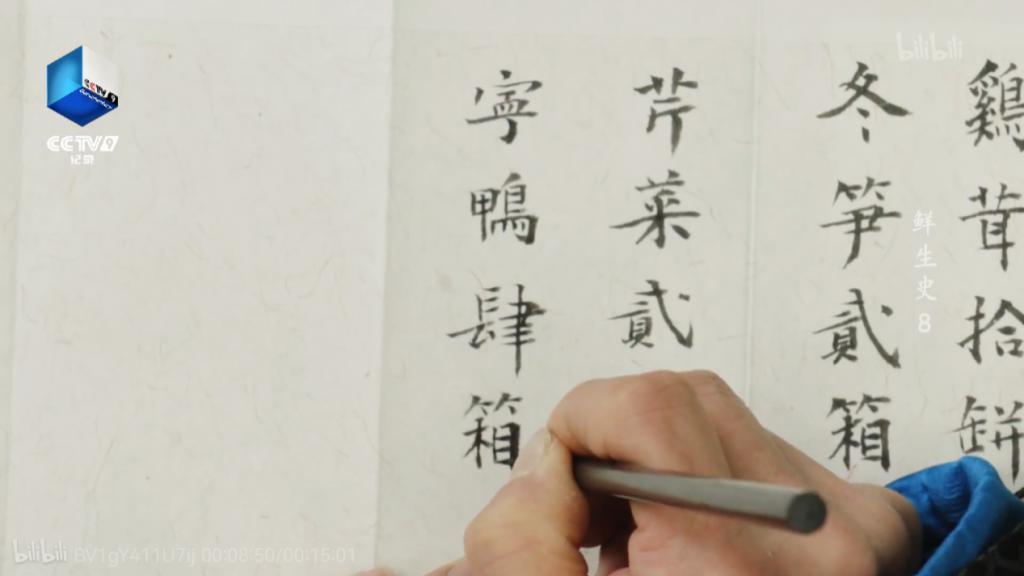 CCTV 9
Documentary
CCTV9
纪录
bilibili
鷄茸拾缾
冬笋貳箱
芹菜貳
寕鴨肆箱
鲜生史8
bilibili BV1gY411U7ij 00:08:50/00:15:01